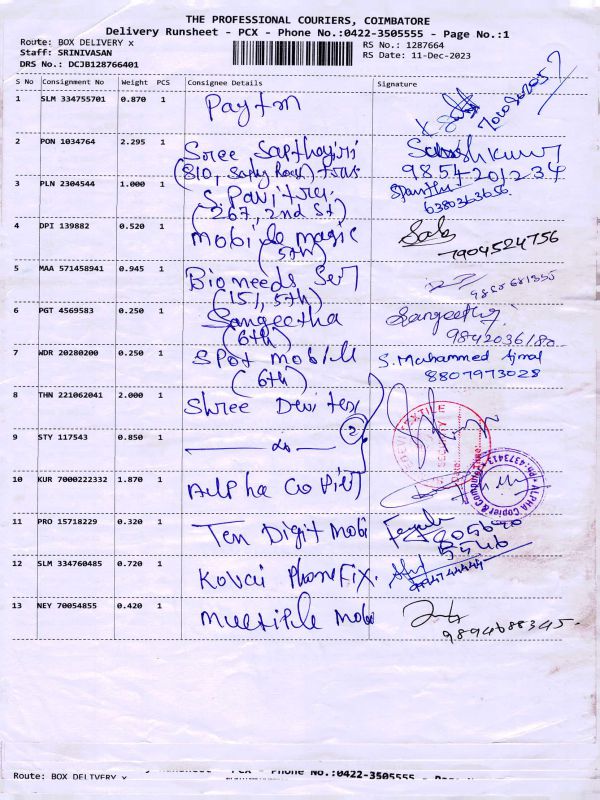 THE PROFESSIONAL COURIERS, COIMBATORE
Delivery Runsheet - PCX - Phone No.:0422-3505555 - Page No.:1
Route: BOX DELIVERY x
Staff: SRINIVASAN
DRS No.: DCJB128766401
RS No.: 1287664
RS Date: 11-Dec-2023
S No Consignment No Weight PCS Consignee Details Signature
1 SLM 334755701 0.870 1 Paytm
2 PON 1034764 2.295 1 Sree Sapthagiri
(810, 
9854201234
3 PLN 2304544 1.000 1 S. Pavitra
(267, 2nd St)
6380343656
4 DPI 139882 0.520 1 mobile magic
(5th)
7904524756
5 MAA 571458941 0.945 1 Bioneeds Ser
(151, 5th)
6 PGT 4569583 0.250 1 Sangeetha Sangeetha
(6th) 9842036180
7 WDR 20280200 0.250 1 Spot mobile S. Muhammed Ajmal
(6th) 8807973028
8 THN 221062041 2.000 1 Shree Devi tex
9 STY 117543 0.850 1 do
2
10 KUR 7000222332 1.870 1 Alpha Copier
11 PRO 15718229 0.320 1 Ten Digit Mobi
5546
12 SLM 334760485 0.720 1 Kovai PhoneFix.
13 NEY 70054855 0.420 1 multiple Mobi
9894688345
Route: BOX DELIVERY x
Delivery Runsheet - PCX - Phone No.:0422-3505555 - Page No.